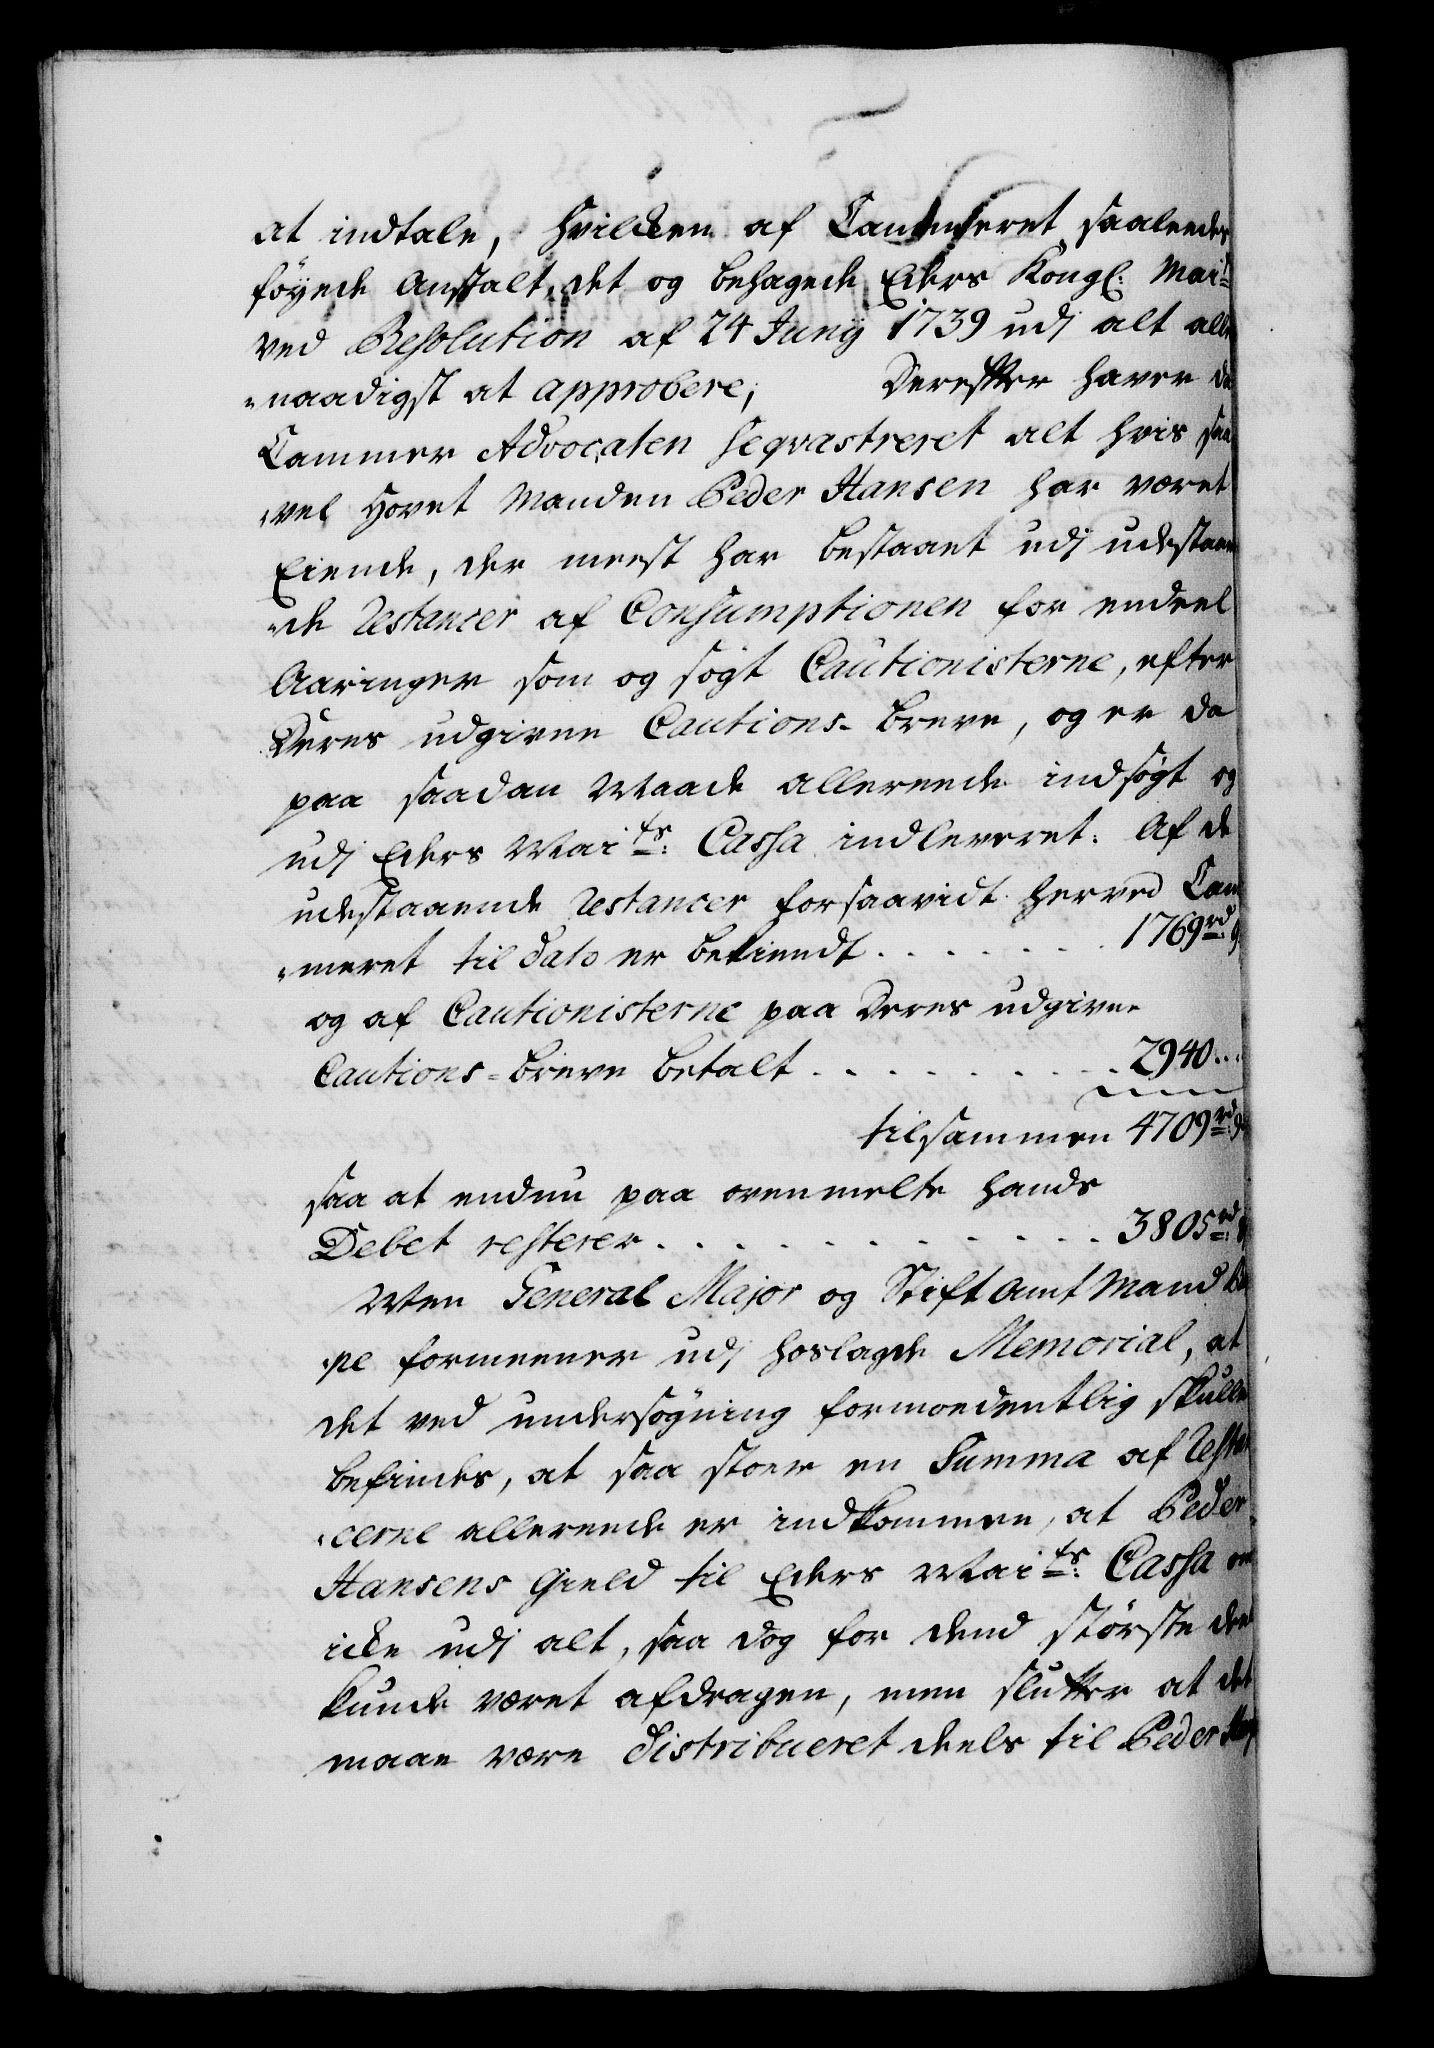 at indtale, hvilcken af Cammeret saaleedes
föyede Anstalt, det og behagede Eders Kongl: Mait
ved Resolution af 24 Junÿ 1739 udj alt aller
-naadigst at approbere, Derefter haver
Cammer Advocaten seqvastreret alt hvis saa
-vel Hovet Manden Peder Hansen har været
Eiende, der meest har bestaaet udj udestaaen
-de Restancer af Consumptionen for endeel
Aaringer som og sögt Cautionisterne, efter
Deres udgivne Cautions-breve, og er da
paa saadan Maade allereede indsögt og
udj Eders Maits: Cassa indleveret: Af de
udestaaende Restancer forsaavidt herved Cam
-meret til dato er bekiendt . . . . . . 1769rd:
og af Cautionisterne paa Deres udgivne
Cautions-breve betalt . . . . . . . . 2940..
tilsammen 4709rd:
saa at endnu paa ovenmelte hands
Debet resterer . . . . . . . . . . . . 3805rd:
Men General Major og Stift Amt Mand
-pe formeener udj hoslagde Memorial, at
det ved undersögning formoedentlig skulle
befindes, at saa stoer en Summa af Restan
-cerne allereede er indkommen, at Peder
Hansens Gield til Eders Maits: Cassa om
icke udj alt, saa dog for dend störste deel
kunde været afdragen, men slutter at det
maae være distribueret deels til Peder